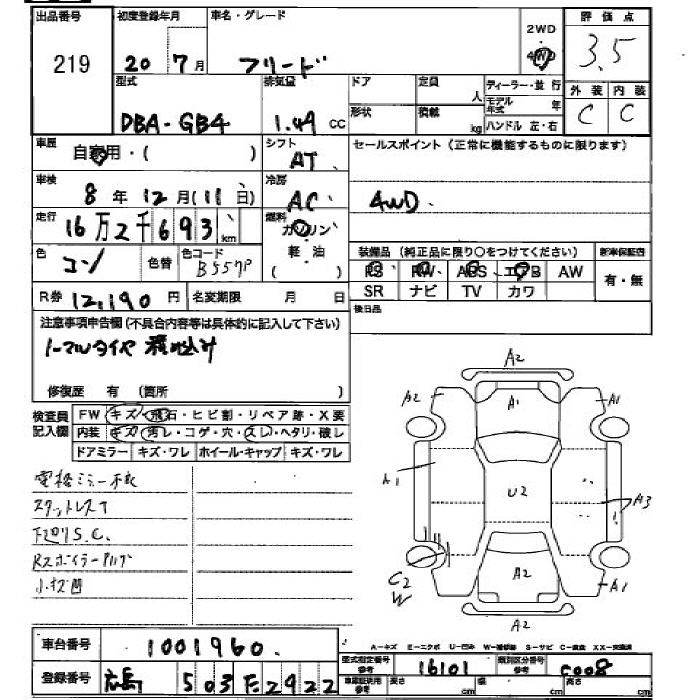 出品番号 初度登録年月 車名・グレード 2WD 評価点
219 20 7月 フリード 4WD 3.5
型式 排気量 ドア 定員 人 ディーラー・並行 外装 内装
DBA-GB4 1.49 CC 形状 積載 kg モデル年式 年 C C
ハンドル 左・右
車歴 自家用・( ) シフト AT セールスポイント (正常に機能するものに限ります)
車検 8年 12月 (11日) 冷房 AC 4WD
走行 16万2千693 km 燃料 ガソリン
色 コン 色替 色コード B557P 軽・油 装備品 (純正品に限り〇をつけてください) 新車保証書
PS PW ABS エアB AW 有・無
R券 12,190円 名変期限 月 日 SR ナビ TV カワ
注意事項申告欄 (不具合内容等は具体的に記入して下さい) 後日品
ノーマルタイヤ積み込み
修復歴 有 (箇所 )
検査員 FW キズ・飛石・ヒビ割・リペア跡・X要
記入欄 内装 キズ・汚レ・コゲ・穴・スレ・ヘタリ・破レ
ドアミラー キズ・ワレ ホイール・キャップ キズ・ワレ
電格ミラー不良
スタットレスT
下廻りS.C.
小キズ凹
A2
A2 A1 A1
A1 U2 A3
C2 W A2 A1
A2
A-キズ E-エクボ U-凹み W-補修跡 S-サビ C-腐食 XX-交換済
車台番号 1001960 型式指定番号 参考 16101 類別区分番号 参考 C008
登録番号 広島 503 た 2922 車庫証明用 参考 長さ cm 幅 cm 高さ cm